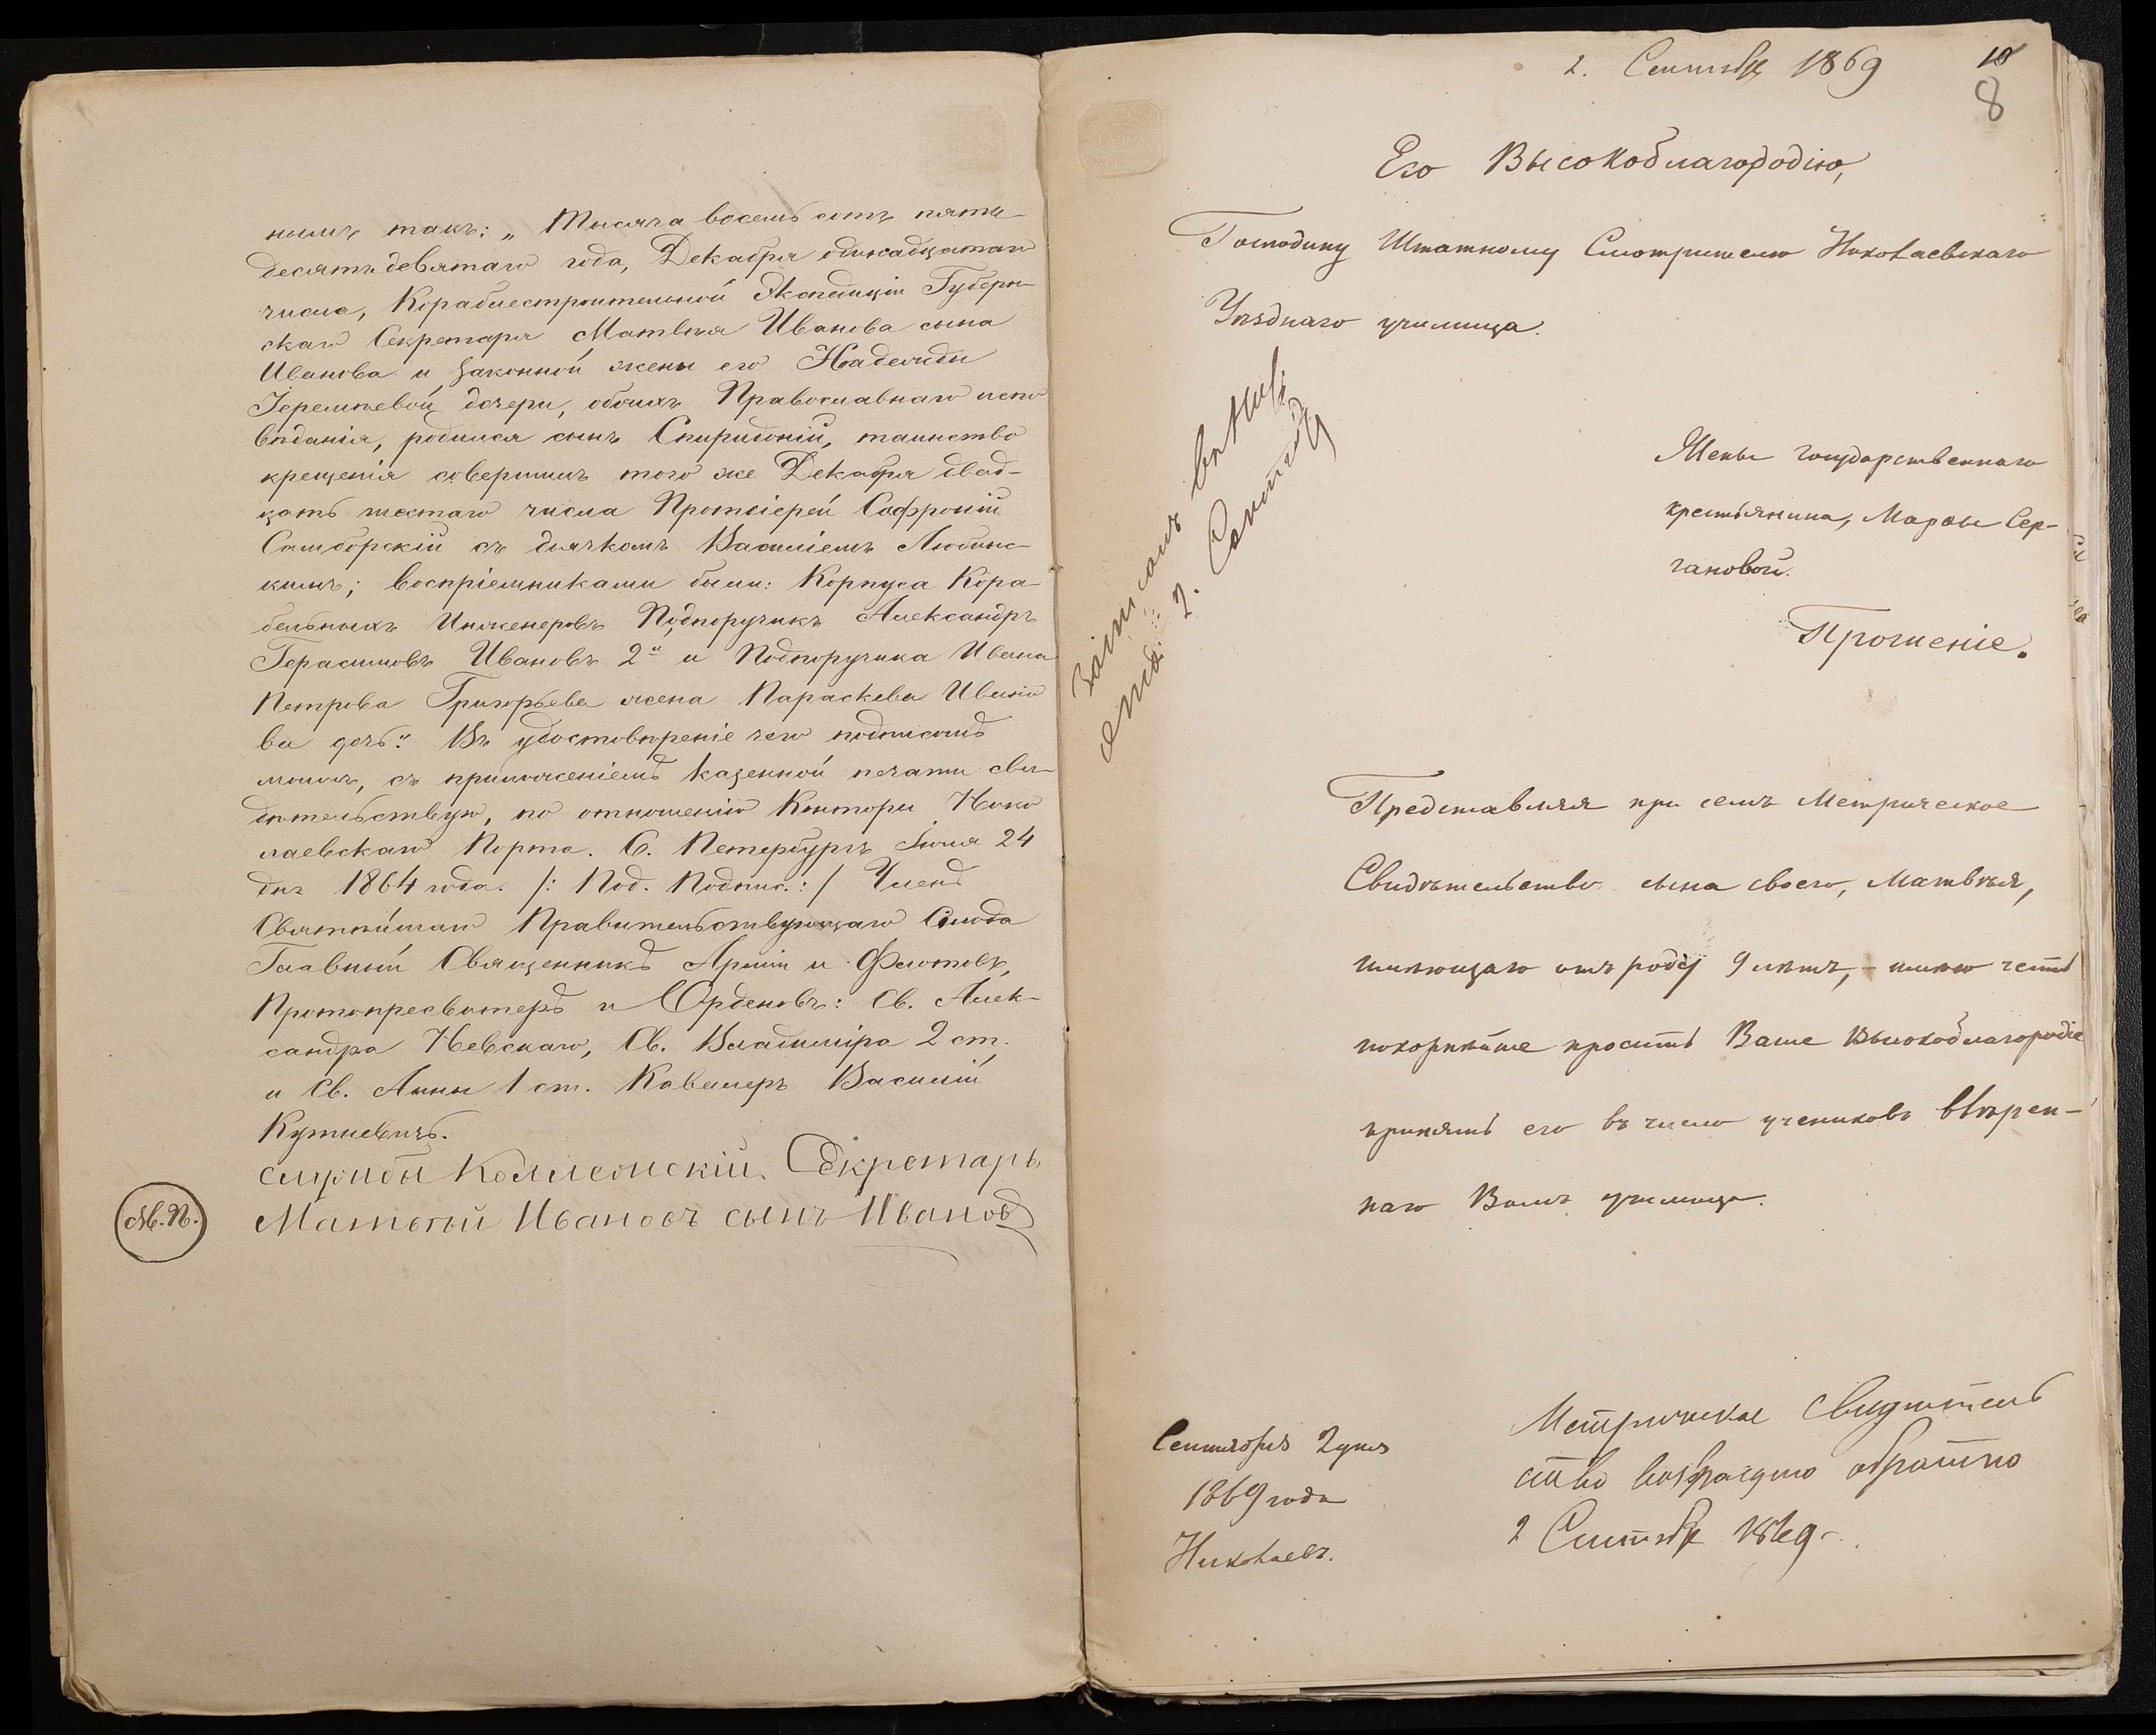 нымъ такъ: „Тысяча восемь сотъ пять-
десятъ девятаго года, Декабря одинадцатаго
числа, Кораблестроительной Экспедиціи Губерн-
скаго Секретаря Матвѣя Иванова сына
Иванова и законной жены его Надежды
Іеремѣевой дочери, обоихъ Православнаго испо
вѣданія, родился сынъ Спиридоній, таинство
крещенія совершилъ того же Декабря двад-
цать шестаго числа Протоіерей Софроній
Самборскій съ дьячкомъ Василіемъ Любинс-
кимъ; воспріемниками были: Корпуса Кора-
бельныхъ Инженеровъ Подпоручикъ Александръ
Герасимовъ Ивановъ 2й и Подпоручика Ивана
Петрова Григорьева жена Параскева Ивано
ва дочь". Въ удостовѣреніе чего подписомъ
моимъ, съ приложеніемъ казенной печати сви-
дѣтельствую, по отношенію Конторы Нико
лаевскаго Порта. С. Петербургъ Іюля 24
дня 1864 года. /: Под. Подпис.:/ Членъ
Святѣйшаго Правительствующаго Синода
Главный Священникъ Арміи и Флотовъ,
Протопресвитеръ и Орденовъ: Св. Алек-
сандра Невскаго, Св. Владиміра 2 ст.
и Св. Анны 1 ст. Кавалеръ Василій
Кутневичъ.
службы Коллежскій Секретарь
М.П. Матвѣй Ивановъ сынъ Ивановъ
2. Сентября 1869
10
8
Его Высокоблагородію,
Господину Штатному Смотрителю Николаевскаго
Уѣзднаго училища.
2. Сентяб
Жены государственнаго
крестьянина, Марѳы Сер-
гановой.
Прошеніе.
Представляя при семъ Метрическое
Свидѣтельство сына своего, Матвѣя,
имѣющаго отъ роду 9 лѣтъ, имѣю честь
покорнѣйше просить Ваше Высокоблагородіе
принять его въ число учениковъ ввѣрен-
наго Вамъ училища.
Сентября 2 дня
1869 года
Николаевъ.
Метрическое свидѣтель
ство возвращено обратно
2 Сентября 1869